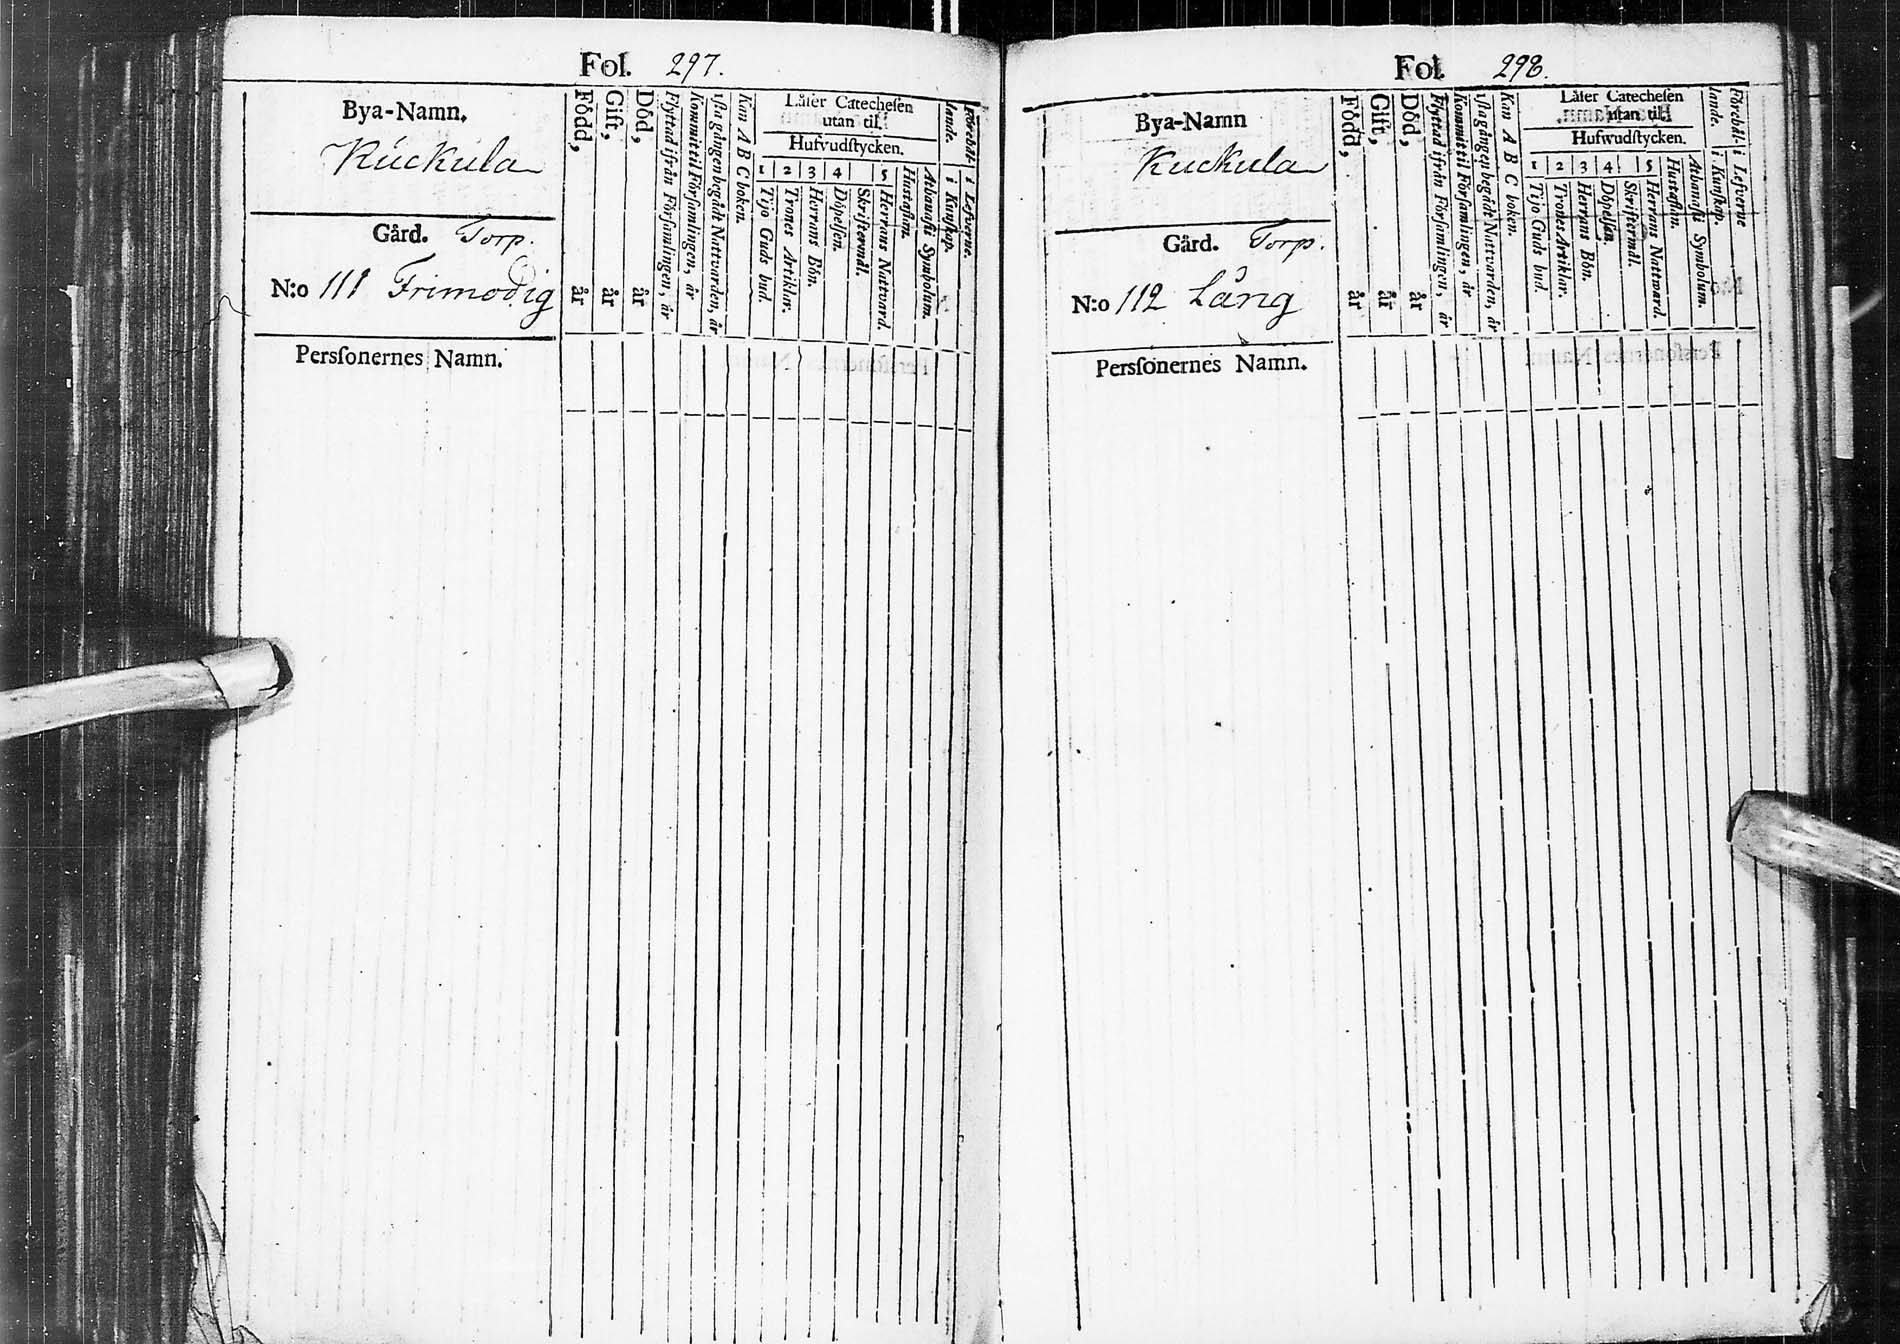 Fol. 297.
Bya-Namn.
Kuckula
Gård. Torp.
N:o 111 Frimodig
Persſonernes Namn.
Född, år
Gift, år
Död, år
Flyttad ifrån Förſamlingen, år
Kommit til Förſamlingen, år
1ſta gången begådt Nattvarden, år
Kan A B C boken.
Läſer Catecheſen
utan til.
Hufvudſtycken.
1 2 3 4 5
Tijo Guds bud.
Trones Artiklar.
Herrans Bön.
Döpelſen.
Skriftermål.
Herrans Nattvard.
Huſtaflan.
Athanaſii Symbolum.
Förehål-
lande.
i Kunſkap.
i Lefverne.
Fol. 298.
Bya-Namn
Kuckula
Gård. Torp.
N:o 112 Lång
Persſonernes Namn.
Född, år
Gift, år
Död, år
Flyttad ifrån Förſamlingen, år
Kommit til Förſamlingen, år
1ſta gången begådt Nattvarden, år
Kan A B C boken.
Läſer Catecheſen
utan til.
Hufwudſtycken.
1 2 3 4 5
Tijo Guds bud.
Trones Artiklar.
Herrans Bön.
Döpelſen.
Skriftermål.
Herrans Nattward.
Huſtaflan.
Athanaſii Symbolum.
Förehål-
lande.
i Kunſkap.
i Lefverne